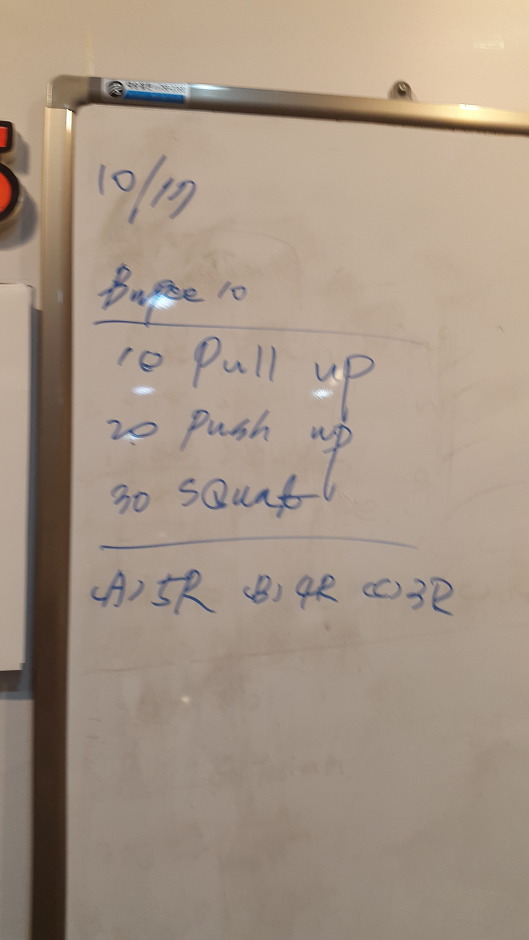 10/17
10
10 Pull up
20 Push up
30 SQuat
A) 5R B) 4R C) 3R